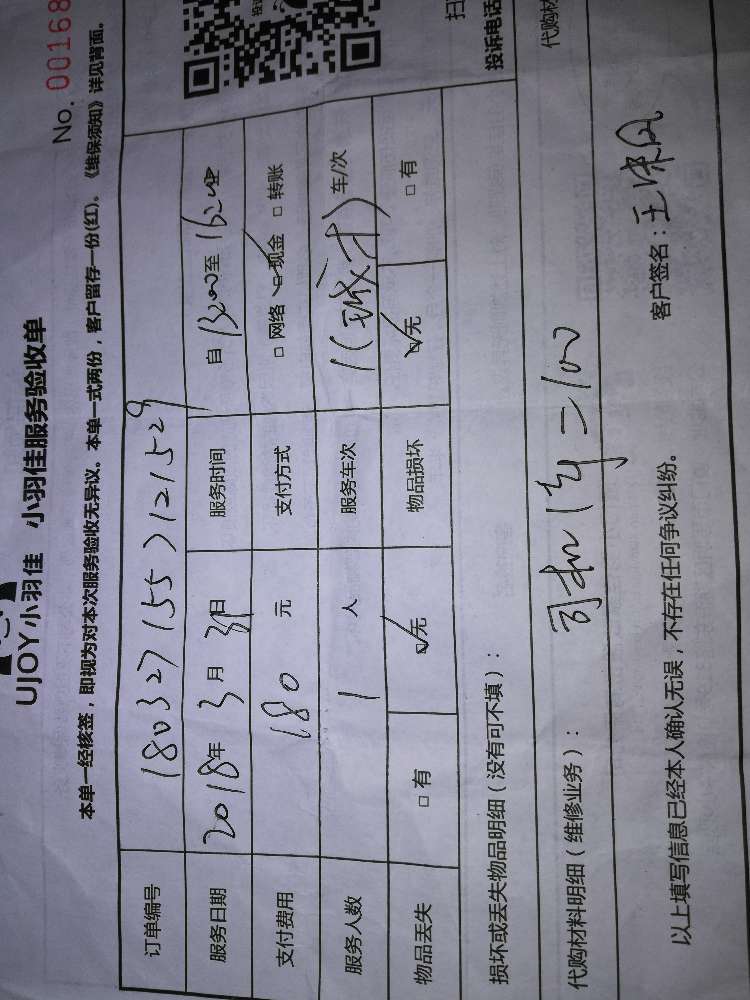 UJOY小羽佳 小羽佳服务验收单
No. 00168
本单一经核签，即视为对本次服务验收无异议。本单一式两份，客户留存一份(红)。《维保须知》详见背面。
订单编号 180327155312152９
服务日期 2018年 3月 31日 服务时间 自 13:00 至
支付费用 180 元 支付方式 □ 网络 ☑ 现金 □ 转账
服务人数 1 人 服务车次 1 车/次
物品丢失 □ 有 ☑ 无 物品损坏 ☑ 无 □ 有
损坏或丢失物品明细（没有可不填）：
投诉电话
代购材料明细（维修业务）：
司机 一100
以上填写信息已经本人确认无误，不存在任何争议纠纷。
客户签名：王